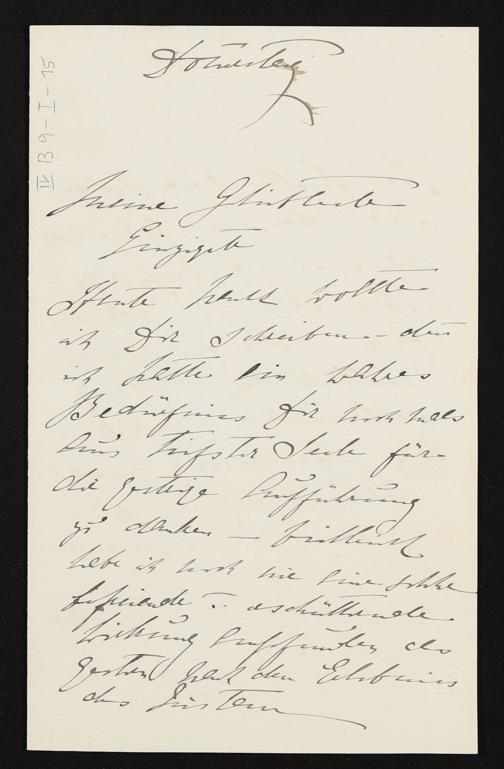 Donnerstag
IV B 9 - I - 15
Meine Geliebteste
Einzigste
Heute Nacht wollte
ich Dir schreiben – den
ich hatte ein wahres
Bedürfniss Dir noch mals
aus tiefster Seele für
die gestrige Aufführung
zu danken –
habe ich noch nie eine solche
befreiende u. erschütternde
Wirkung empfunden als
gestern nach dem Erlebniss
des